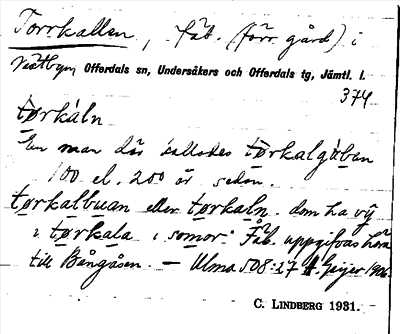 Torrkallen, fäb. (förr gård) i
Västbyn, Offerdals sn, Undersåkers och Offerdals tg, Jämtl. l.
374
tørkáln
En man där kallades tørkalgúben
100 el. 200 år sedan.
tørkalbuan eller tørkaln. dom ha vỹ
i tørkala i somor. Fäb. uppgifvas höra
till Bångåsen. — Ulma 508:27 Geijer 1906.
C. LINDBERG 1931.